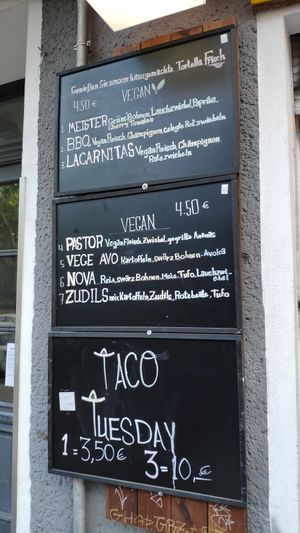 Genießen Sie unsere hausgemachte Tortilla Frisch
4.50 € VEGAN
1. MEISTER Grüne Bohnen, Lauchzwiebel, Paprika,
Cherry Tomaten
2. BBQ Vegan Fleisch, Champignon, Rotzwiebeln
3. LACARNITAS Vegan Fleisch, Champignon
Rotezwiebeln
VEGAN 4.50 €
4. PASTOR Vegan Fleisch, Zwiebel, gegrillte Ananas
5. VEGE AVO Kartoffeln, swarz Bohnen, Avoka
6. NOVA Reis, swarz Bohnen, Mais, Tufo, Lauchzwi-
ebel
7. ZUDILS mix Kartoffeln, Zudils, Rote beite, Tufo
TACO
TUESDAY
1 = 3,50 € 3 = 10,- €